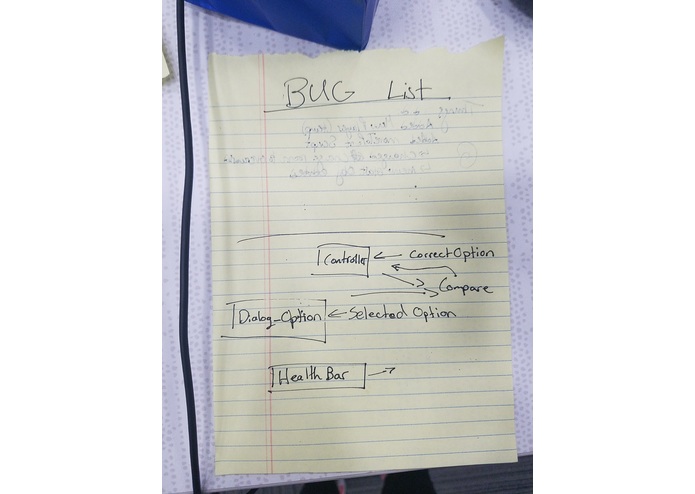 BUG List
Controller ← Correct Option
Compare
Dialog-Option ← Selected Option
Health Bar →